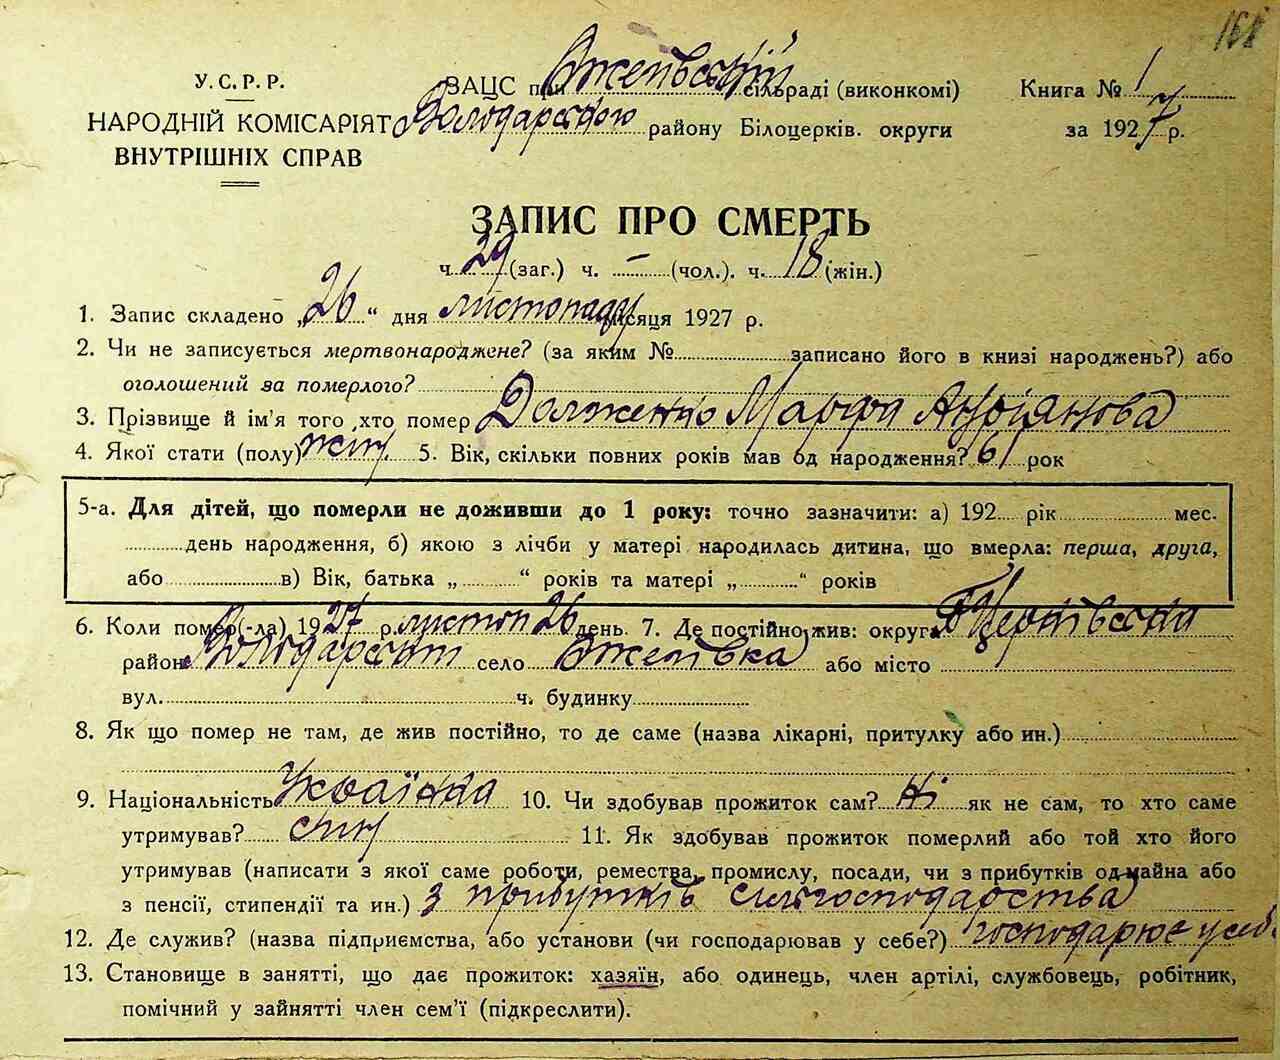 168
У. С. Р. Р.
НАРОДНІЙ КОМІСАРІЯТ
ВНУТРІШНІХ СПРАВ
ЗАЦС при Ожегівський сільраді (виконкомі)
Володарського району Білоцерків. округи
Книга № 1
за 1927 р.
ЗАПИС ПРО СМЕРТЬ
ч. 29 (заг.) ч. – (чол.). ч. 18 (жін.)
1. Запис складено „26“ дня листопаду місяця 1927 р.
2. Чи не записується мертвонароджене? (за яким № записано його в книзі народжень?) або
оголошений за померлого?
3. Прізвище й ім'я того, хто помер Долженко Марфа Андріянова
4. Якої стати (полу) жін. 5. Вік, скільки повних років мав од народження? 61 рок
5-а. Для дітей, що померли не доживши до 1 року: точно зазначити: а) 192 рік мес.
день народження, б) якою з лічби у матері народилась дитина, що вмерла: перша, друга,
або в) Вік, батька „ “ років та матері „ “ років
6. Коли помер(-ла) 1927 р. листоп 26 день. 7. Де постійно жив: округа Б Церківська
район Володарський село Ожегівка або місто
вул. ч. будинку
8. Як що помер не там, де жив постійно, то де саме (назва лікарні, притулку або ин.)
9. Національність Українка 10. Чи здобував прожиток сам? Ні як не сам, то хто саме
утримував? син 11. Як здобував прожиток померлий або той хто його
утримував (написати з якої саме роботи, ремества, промислу, посади, чи з прибутків од майна або
з пенсії, стипендії та ин.) з прибутків сільгосподарства
12. Де служив? (назва підприємства, або установи (чи господарював у себе?) господарює у себе
13. Становище в занятті, що дає прожиток: хазяїн, або одинець, член артілі, службовець, робітник,
помічний у зайнятті член сем'ї (підкреслити).